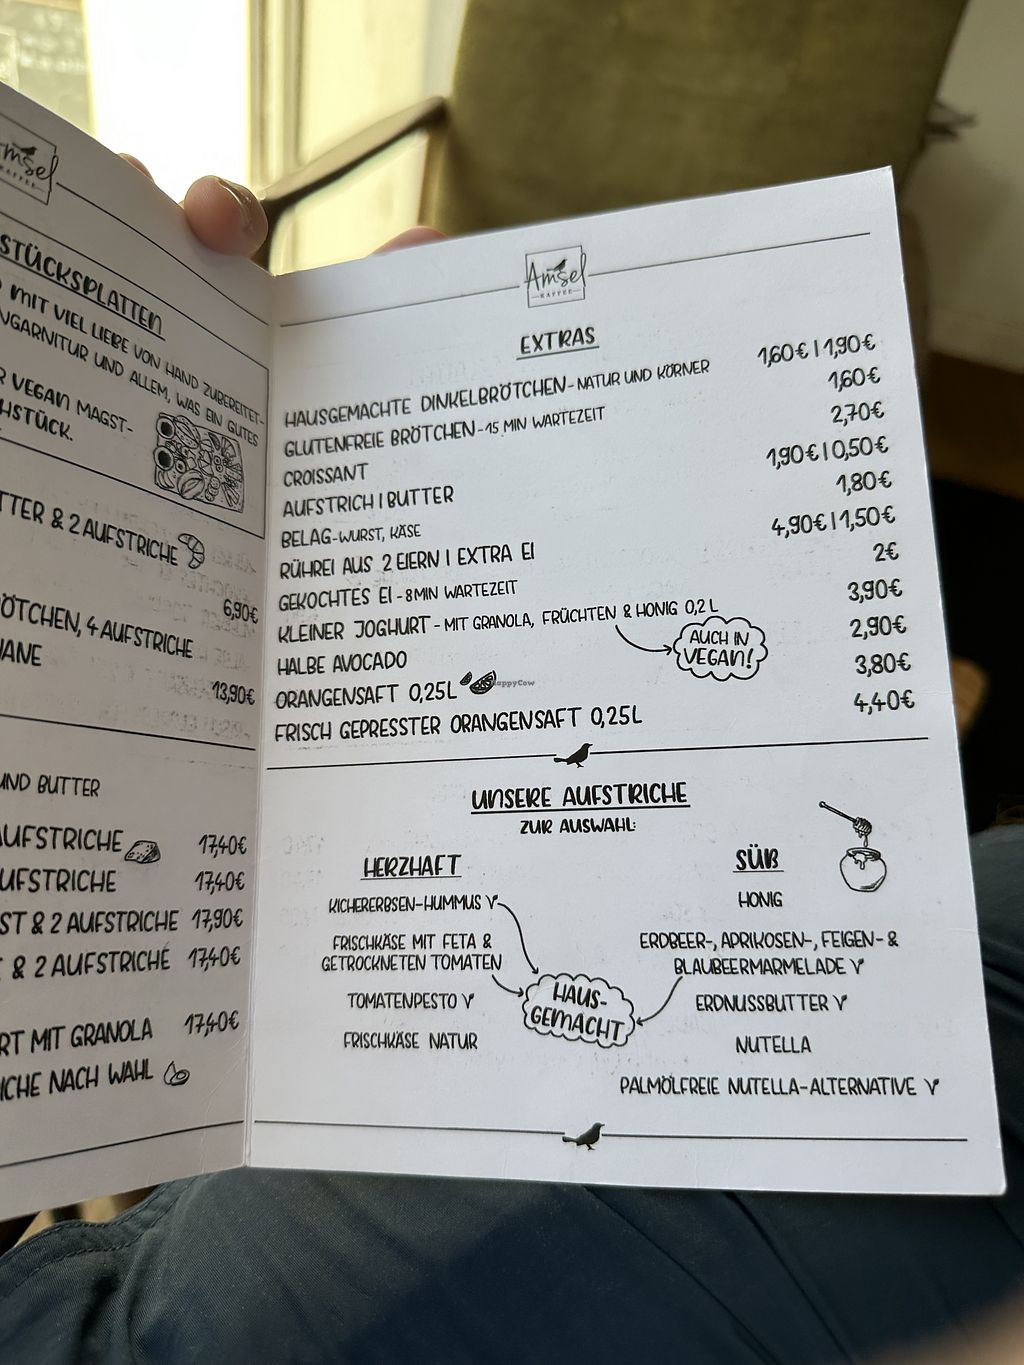 Amsel
KAFFEE
STÜCKSPLATTEN
MIT VIEL LIEBE VON HAND ZUBEREITET-
NGARNITUR UND ALLEM, WAS EIN GUTES
R VEGAN MAGST-
HSTÜCK.
TTER & 2 AUFSTRICHE
6,90€
ÖTCHEN, 4 AUFSTRICHE
13,90€
UND BUTTER
AUFSTRICHE 17,40€
UFSTRICHE 17,40€
ST & 2 AUFSTRICHE 17,90€
& 2 AUFSTRICHE 17,40€
RT MIT GRANOLA 17,40€
ICHE NACH WAHL
Amsel
KAFFEE
EXTRAS
HAUSGEMACHTE DINKELBRÖTCHEN-NATUR UND KÖRNER 1,60€ | 1,90€
GLUTENFREIE BRÖTCHEN-15 MIN WARTEZEIT 1,60€
CROISSANT 2,70€
AUFSTRICH | BUTTER 1,90€ | 0,50€
BELAG-WURST, KÄSE 1,80€
RÜHREI AUS 2 EIERN | EXTRA EI 4,90€ | 1,50€
GEKOCHTES EI - 8MIN WARTEZEIT 2€
KLEINER JOGHURT - MIT GRANOLA, FRÜCHTEN & HONIG 0,2 L 3,90€
AUCH IN
VEGAN!
HALBE AVOCADO 2,90€
ORANGENSAFT 0,25L 3,80€
HappyCow
FRISCH GEPRESSTER ORANGENSAFT 0,25L 4,40€
UNSERE AUFSTRICHE
ZUR AUSWAHL:
HERZHAFT
KICHERERBSEN-HUMMUS V
FRISCHKÄSE MIT FETA &
GETROCKNETEN TOMATEN
TOMATENPESTO V
FRISCHKÄSE NATUR
HAUS-
GEMACHT
SÜß
HONIG
ERDBEER-, APRIKOSEN-, FEIGEN- &
BLAUBEERMARMELADE V
ERDNUSSBUTTER V
NUTELLA
PALMÖLFREIE NUTELLA-ALTERNATIVE V